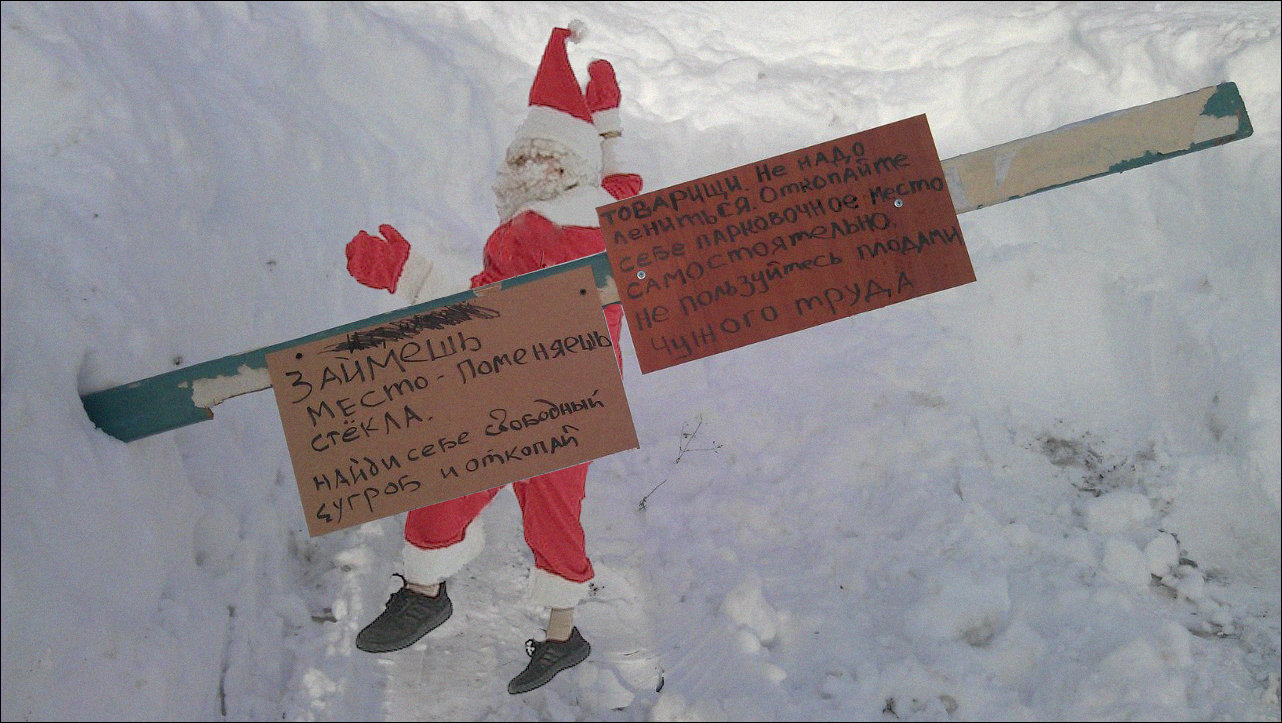 ЗАЙМЕШЬ
МЕСТО - ПОМЕНЯЕШЬ
СТЁКЛА.
НАЙДИ СЕБЕ СВОБОДНЫЙ
СУГРОБ И ОТКОПАЙ
ТОВАРИЩИ. НЕ НАДО
ЛЕНИТЬСЯ. ОТКОПАЙТЕ
СЕБЕ ПАРКОВОЧНОЕ МЕСТО
САМОСТОЯТЕЛЬНО.
НЕ ПОЛЬЗУЙТЕСЬ ПЛОДАМИ
ЧУЖОГО ТРУДА